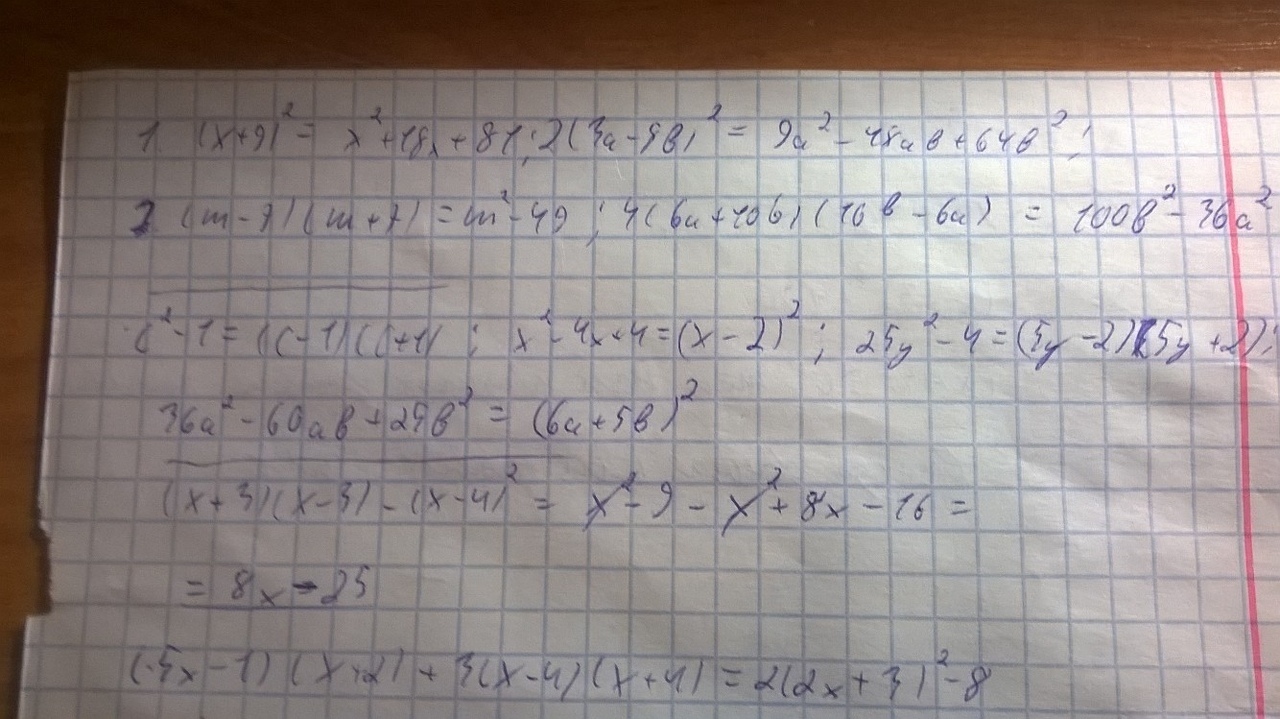 1. (x+9)² = x²+18x+81; 2(3a-8в)² = 9a²-48aв+64в²;
3 (m-7)(m+7) = m²-49; 4(6a+10в)(10в-6a) = 100в²-36a²
c²-1 = (c-1)(c+1); x²-4x+4=(x-2)²; 25y²-4=(5y-2)(5y+2);
36a²-60aв+25в² = (6a+5в)²
(x+3)(x-3)-(x-4)² = x²-9-x²+8x-16 =
= 8x-25
(5x-1)(x+2)+3(x-4)(x+4)=2(2x+3)²-8